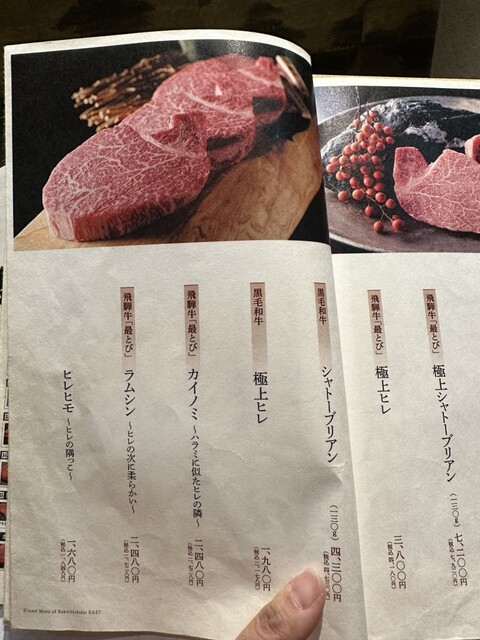 飛騨牛「最とび」
極上シャトーブリアン (一三〇g) 七、二〇〇円
(税込 七、九二〇円)
飛騨牛「最とび」
極上ヒレ 三、八〇〇円
(税込 四、一八〇円)
黒毛和牛
シャトーブリアン (一三〇g) 四、三〇〇円
(税込 四、七三〇円)
黒毛和牛
極上ヒレ 一、九八〇円
(税込 二、一七八円)
飛騨牛「最とび」
カイノミ 〜ハラミに似たヒレの隣〜 二、四八〇円
(税込 二、七二八円)
飛騨牛「最とび」
ラムシン 〜ヒレの次に柔らかい〜 二、四八〇円
(税込 二、七二八円)
ヒレヒモ 〜ヒレの隅っこ〜 一、六八〇円
(税込 一、八四八円)
Menu of EAST